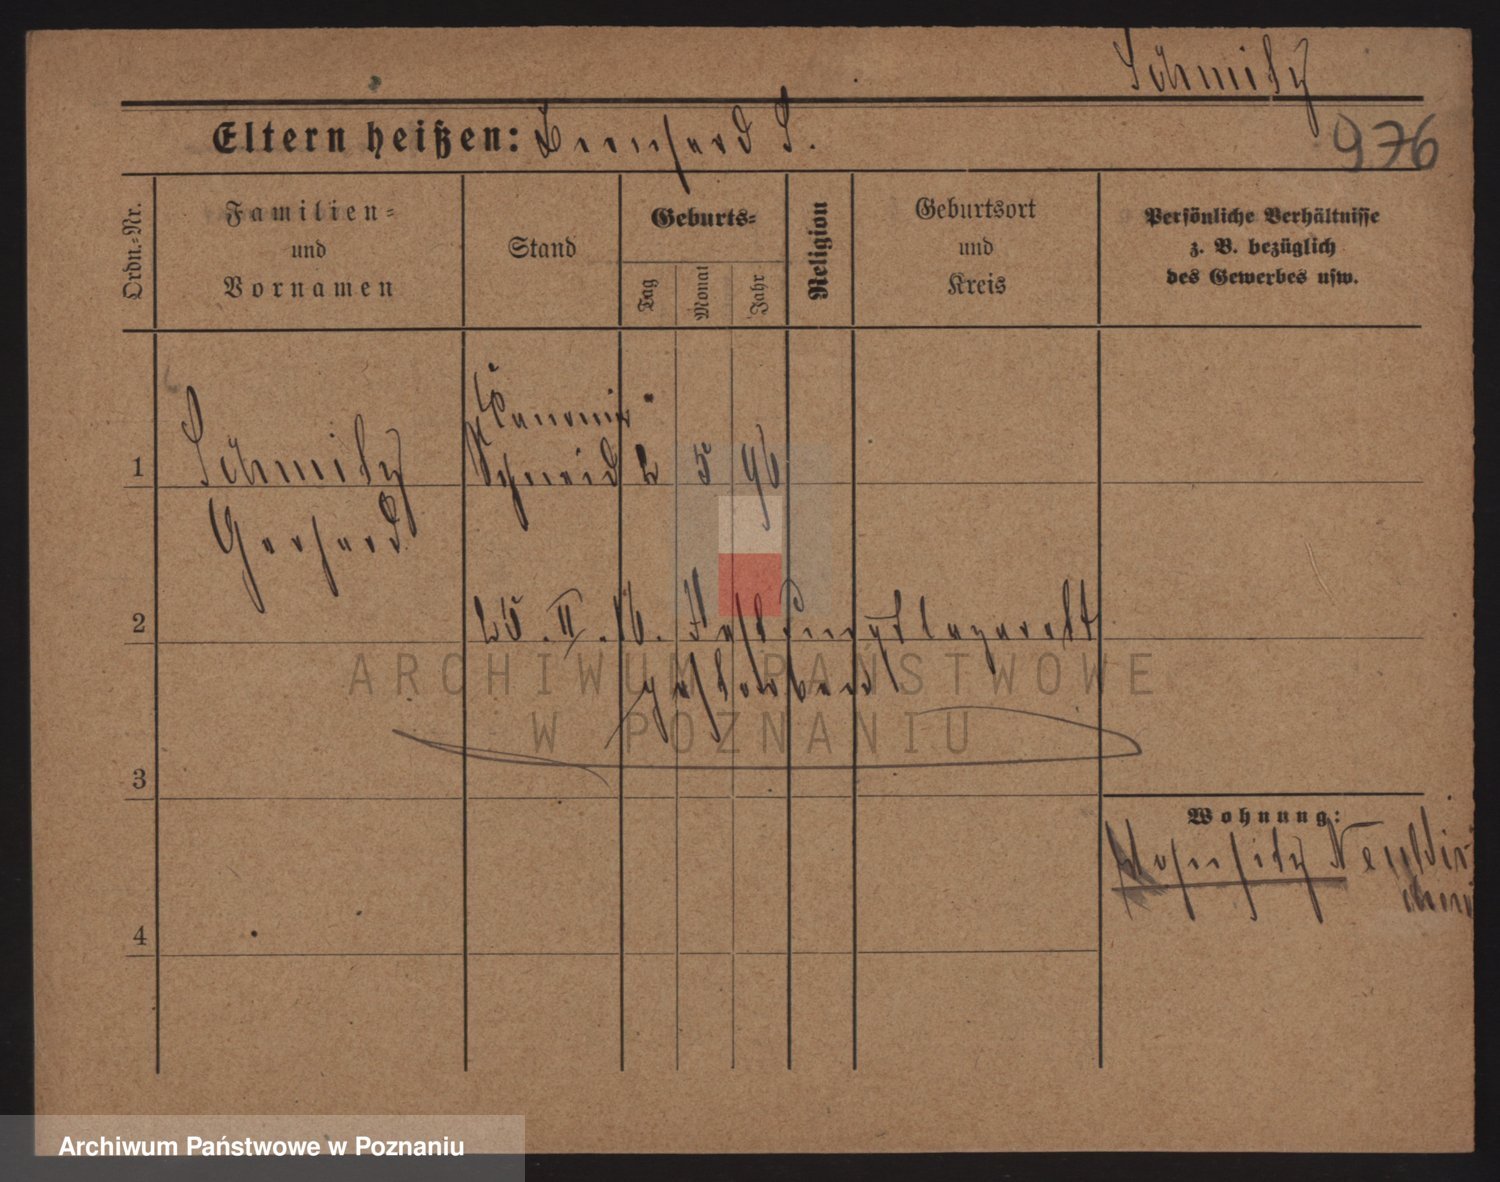 Schmitz
Eltern heißen: Bernhard S.
976
Ordn.-Nr.
Familien- und Vornamen
Stand
Geburts-
Tag
Monat
Jahr
Religion
Geburtsort und Kreis
Persönliche Verhältnisse z. B. bezüglich des Gewerbes usw.
Kanonier
1 Schmitz Schneid 2 5 96
Gerhard
2 25. II. 16. Festungslazarett
gestorben
ARCHIWUM PAŃSTWOWE
W POZNANIU
3
Wohnung:
4
Archiwum Państwowe w Poznaniu